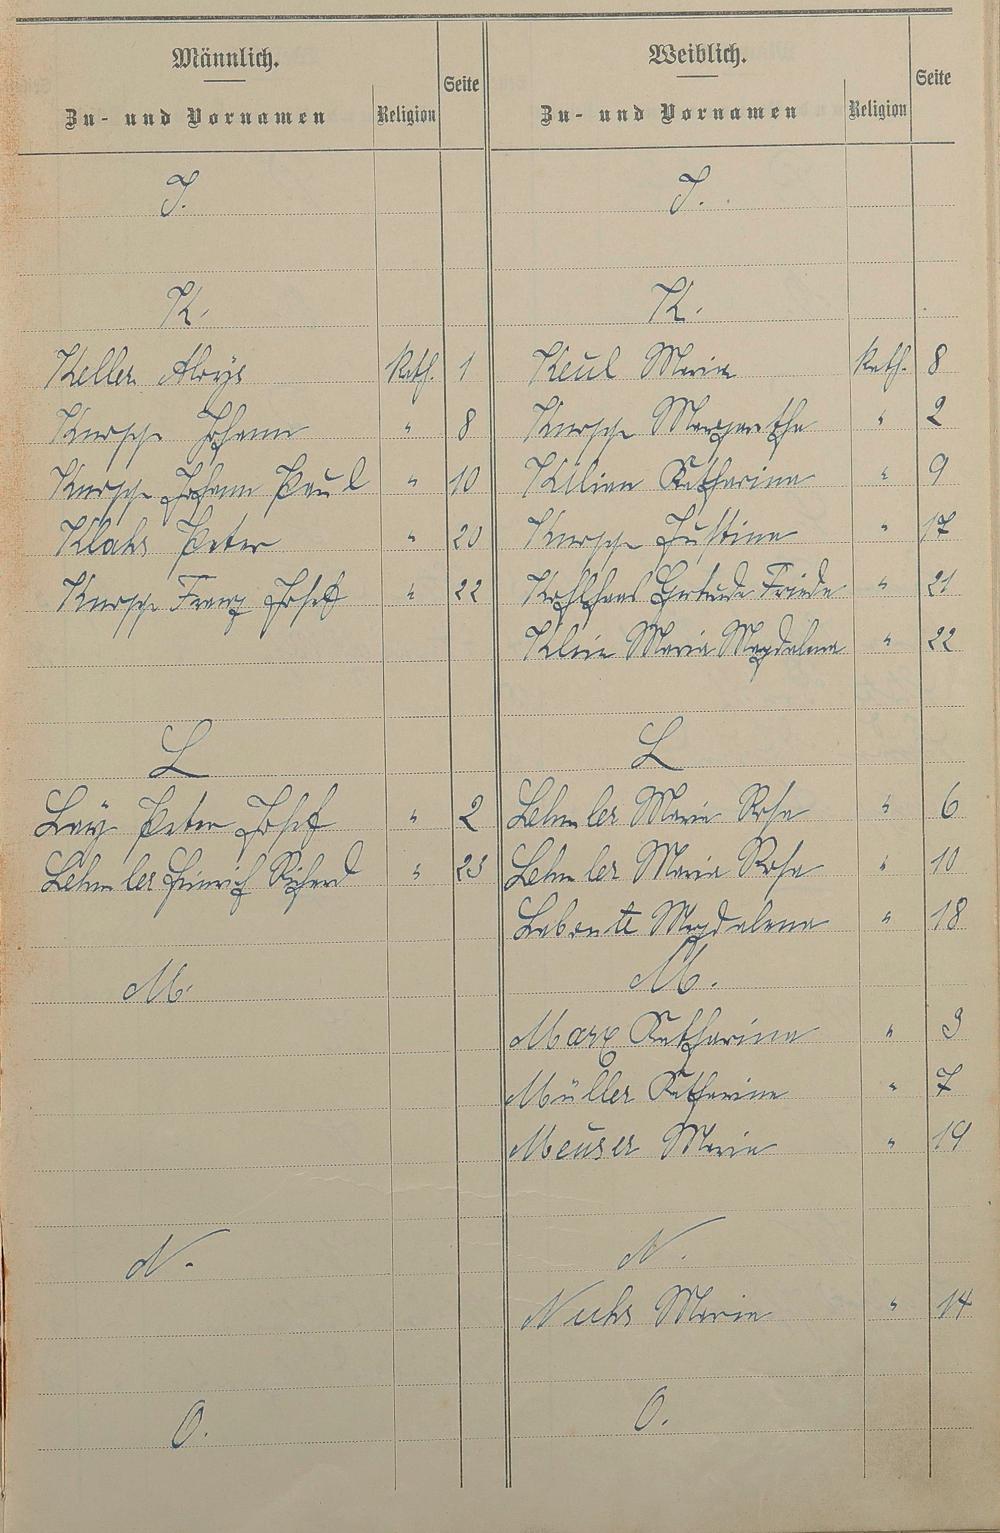 Männlich.
Zu- und Vornamen Religion Seite
J.
K.
Keller Aloys Kath. 1
Johann " 8
Johann Paul " 10
Klahs Peter " 20
Franz Josef " 22
L
Lay Peter Josef " 2
Lehmler Heinrich Richard " 23
M.
N.
O.
Weiblich.
Zu- und Vornamen Religion Seite
J.
K.
Keul Maria Kath. 8
Margaretha " 2
Kilian Katharina " 9
Justina " 17
Kohlhaas Gertrude Frieda " 21
Klein Maria Magdalena " 22
L
Lehmler Maria Rosa " 6
Lehmler Maria Rosa " 10
Labonte Magdalena " 18
M.
Marx Katharina " 3
Müller Katharina " 7
Meuser Maria " 19
N.
Maria " 14
O.